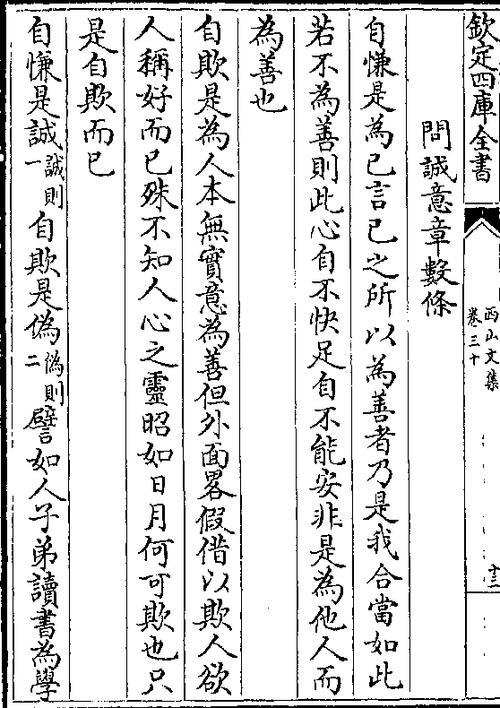 欽定四庫全書
西山文集
卷三十
十三
問誠意章數條
自慊是為己言己之所以為善者乃是我合當如此
若不為善則此心自不快足自不能安非是為他人而
為善也
自欺是為人本無實意為善但外面畧假借以欺人欲
人稱好而已殊不知人心之靈昭如日月何可欺也只
是自欺而已
自慊是誠誠則一自欺是偽偽則二譬如人子弟讀書為學